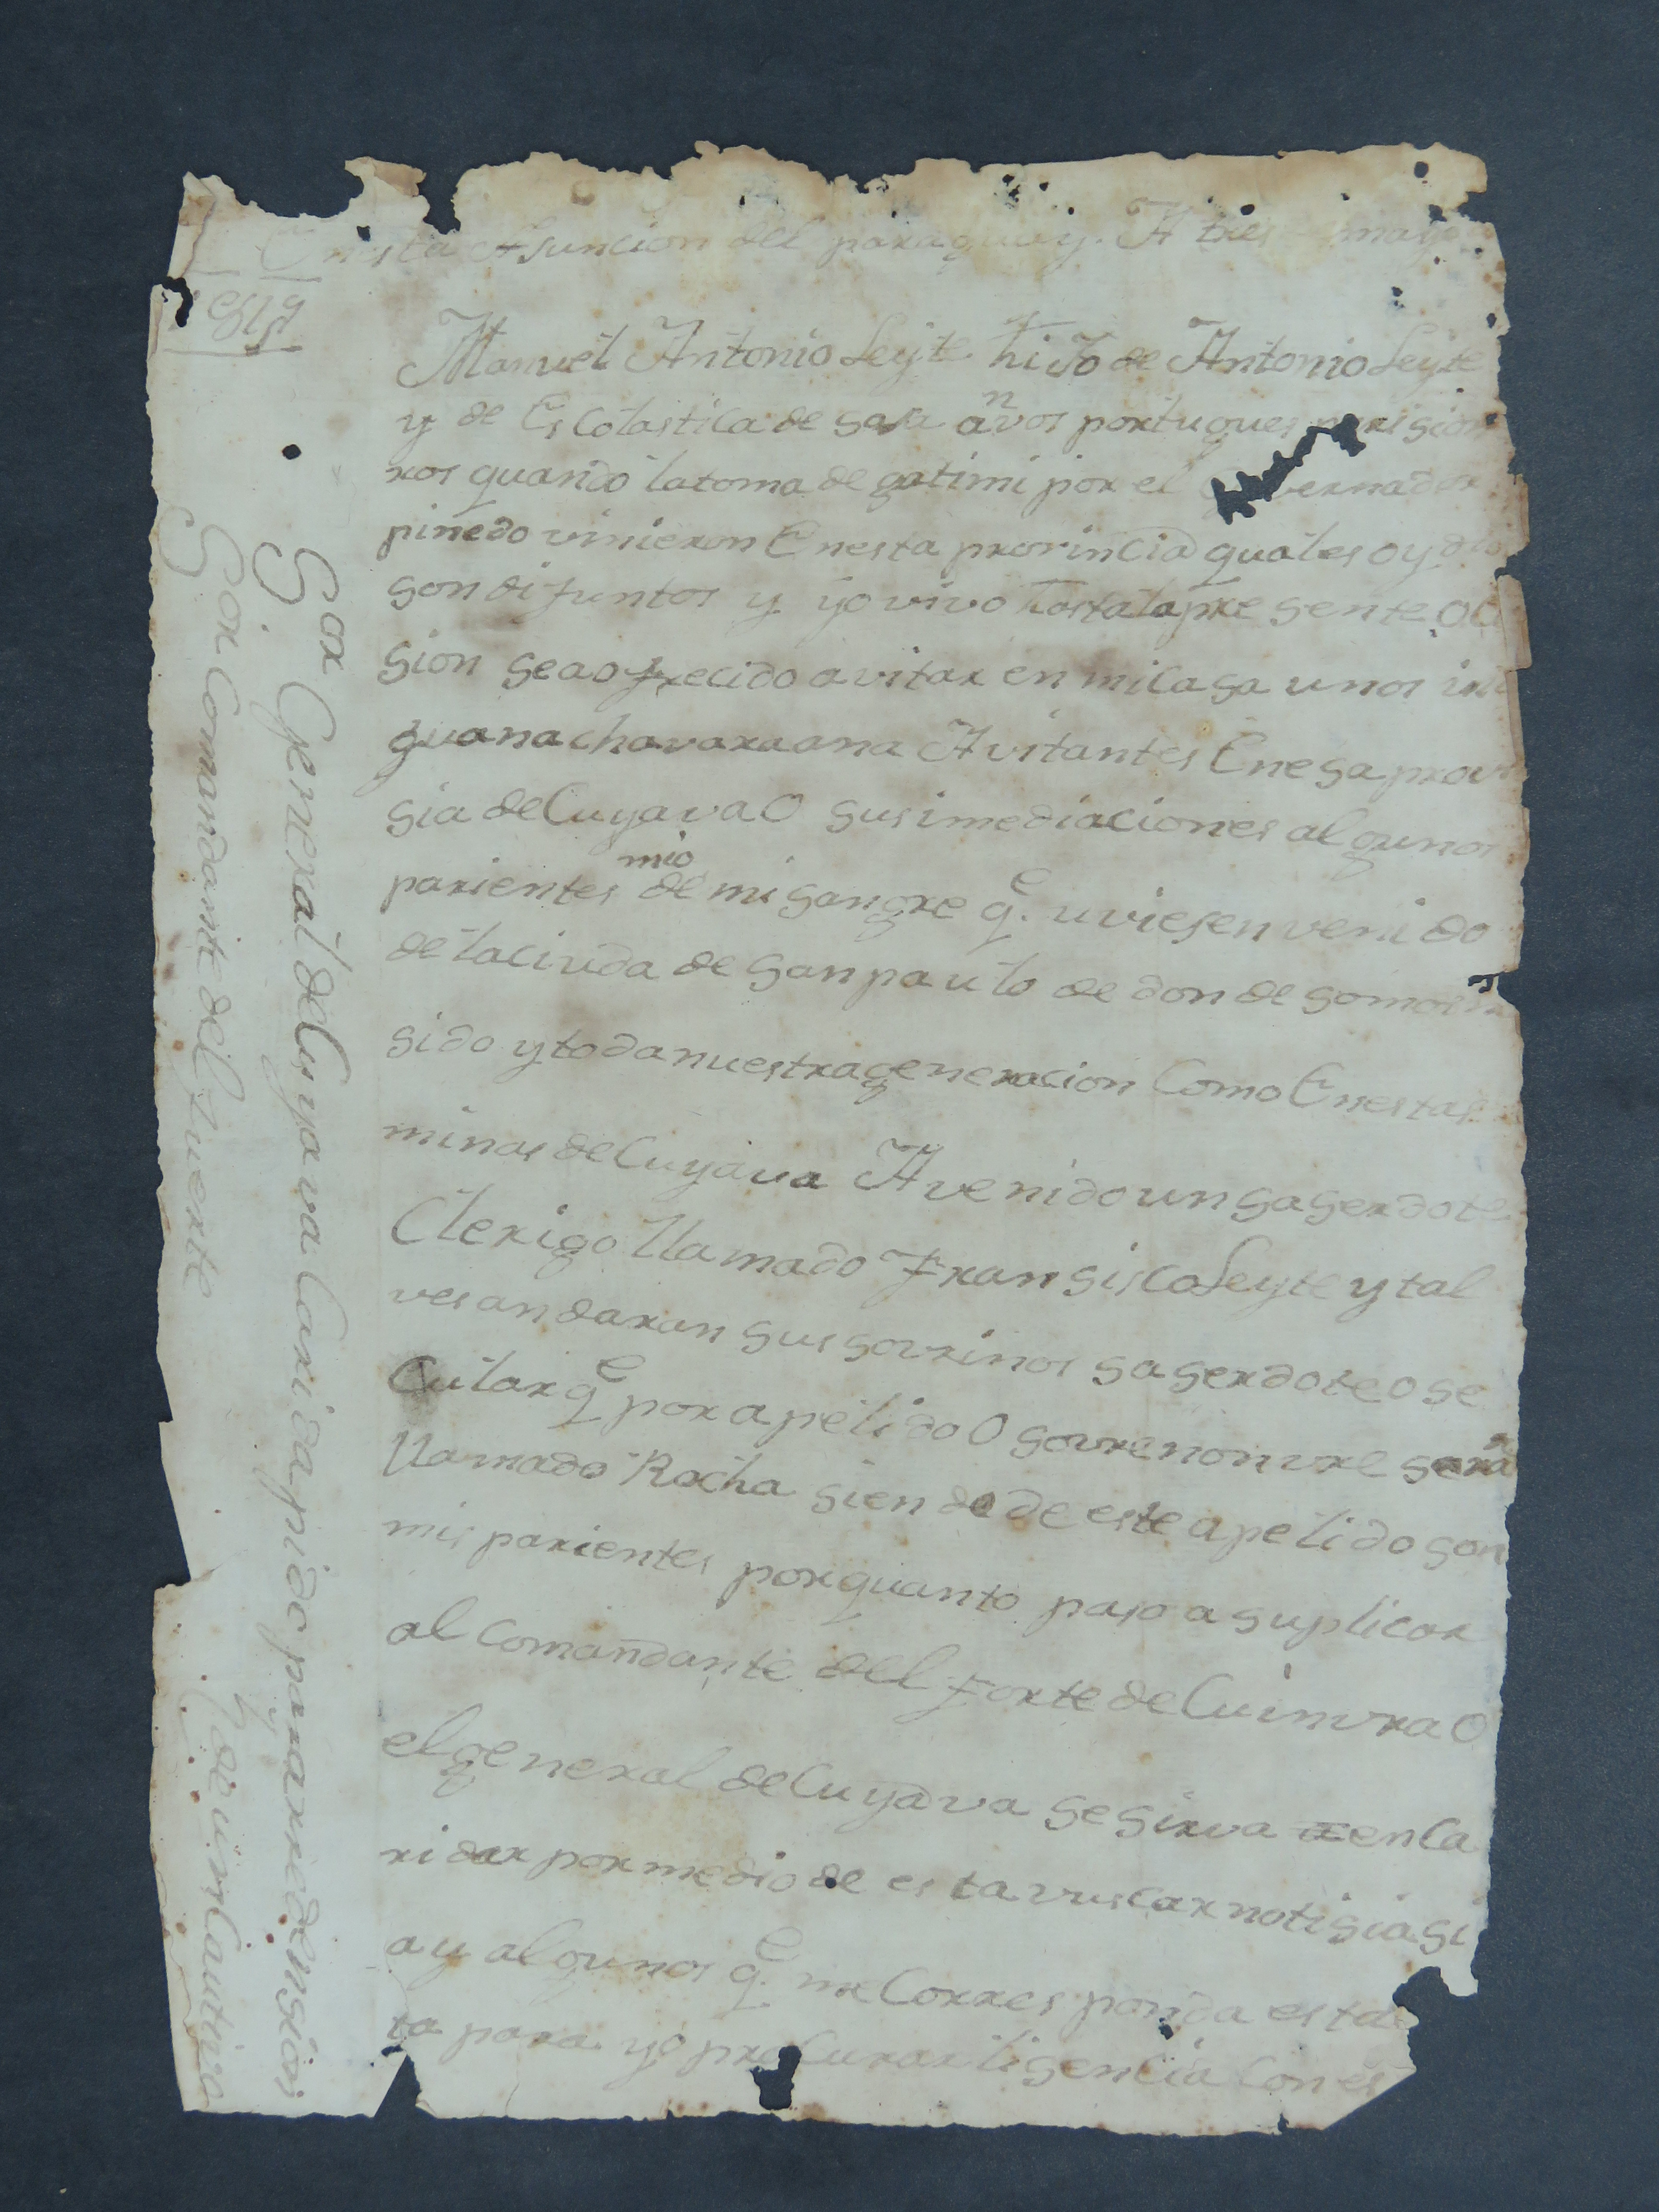 Enesta Asuncion del paraguay. A tres mayo
Manuel Antonio Leyte hiJo de Antonio Leyte
y de Escolastica de sosa anvos portugues prision
ros quando la toma de gatimi por el governador
pinedo vinieron Enesta provincia quales oy dia
son difuntos y yo vivo hasta la presente oca
sion se a ofrecido avitar en mi casa unos
guanachavaraana Avitantes Enesa provi
sia de Cuyava O sus imediaciones algunos
parientes mio de mi sangre q.e uviesen venido
de la ciuda de san paulo de donde somos
sido y toda nuestra generacion Como Enestas
minas de Cuyava A venido un saserdote
Clerigo llamado Fransisco Leyte y tal
ves andaran sus sovrinos saserdote o se
Cular q.e por apelido O sovrenonvre sera
llamado Rocha siendo de este apelido son
mis parientes por quanto paso a suplicar
al Comandante del forte de Cuimvra O
el general de Cuyava se sirva en Ca
ridar por medio de esta vuscar notisia si
ay algunos q.e me Corresponda esta
ta para yo proCurar lisencia Con es
Sor General de Cuyava Carida pido para redension
de un Cautivo
Sor Comandante del fuerte